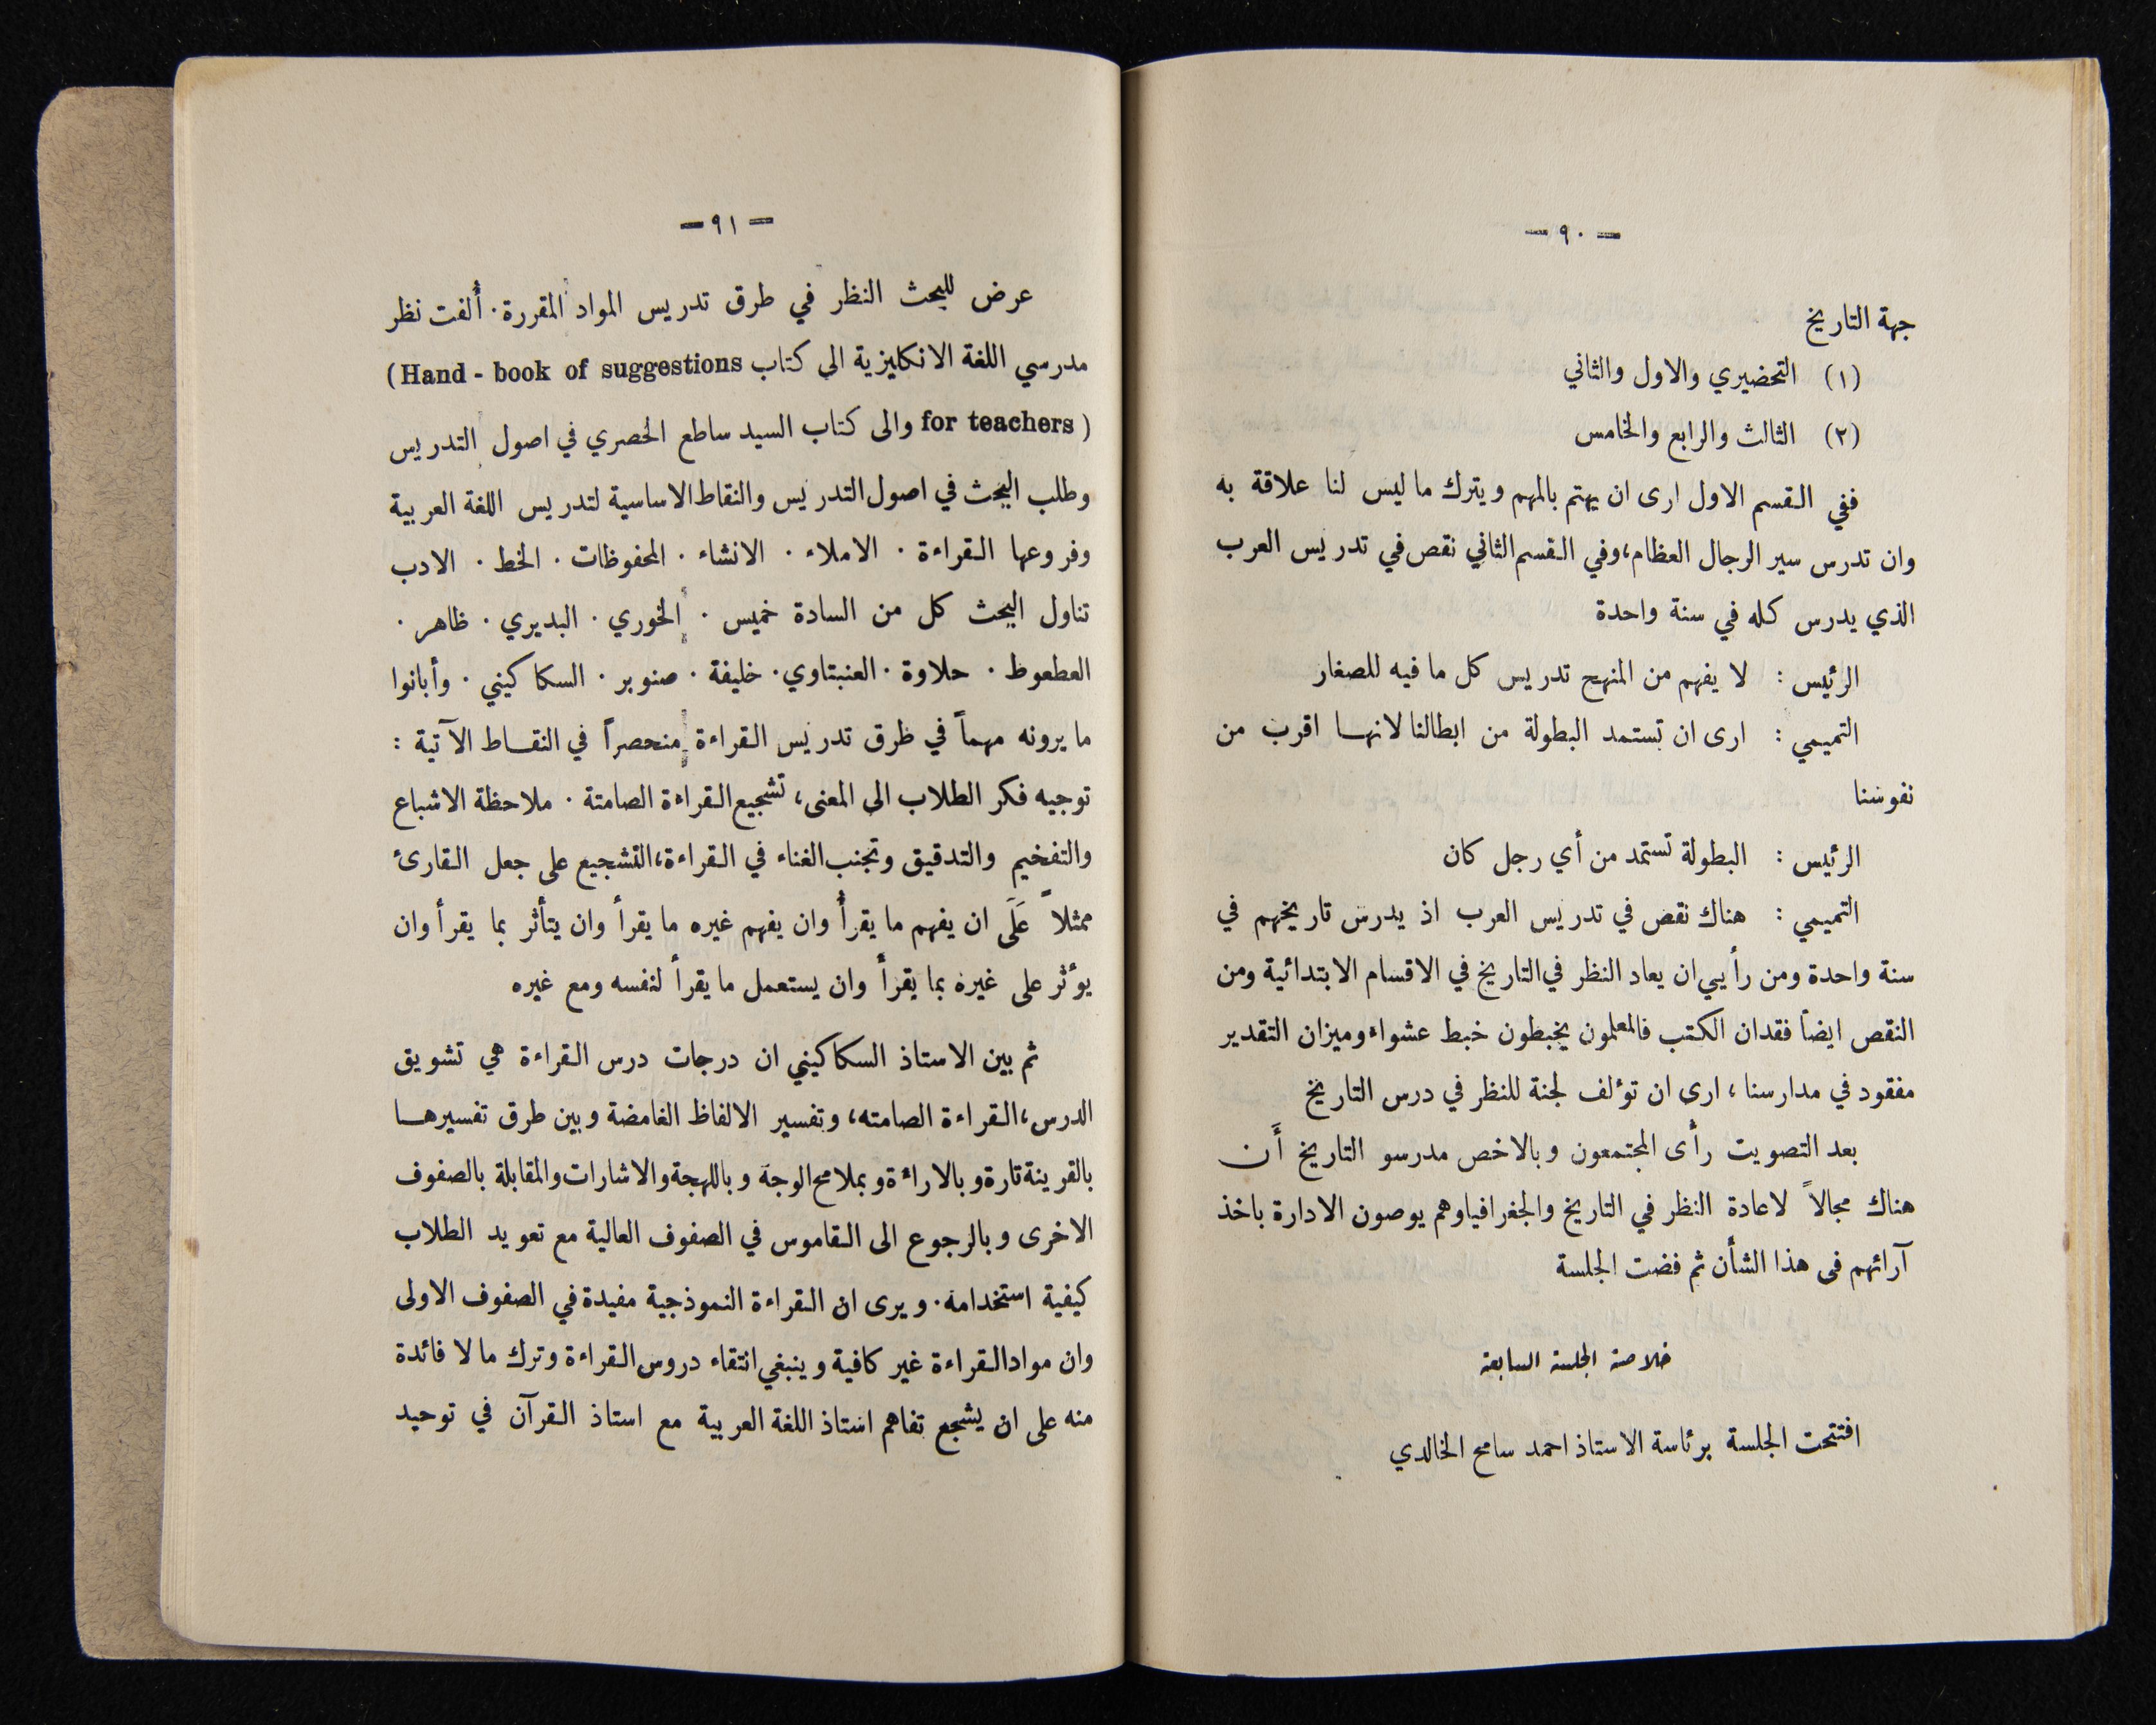 — ٩٠ —
جهة التاريخ
(١) التحضيري والاول والثاني
(٢) الثالث والرابع والخامس
ففي القسم الاول ارى ان يهتم بالمهم ويترك ما ليس لنا علاقة به
وان تدرس سير الرجال العظام، وفي القسم الثاني نقص في تدريس العرب
الذي يدرس كله في سنة واحدة
الرئيس : لا يفهم من المنهج تدريس كل ما فيه للصغار
التميمي : ارى ان تستمد البطولة من ابطالنا لانهـا اقرب من
نفوسنا
الرئيس : البطولة تستمد من أي رجل كان
التميمي : هناك نقص في تدريس العرب اذ يدرس تاريخهم في
سنة واحدة ومن رأيي ان يعاد النظر في التاريخ في الاقسام الابتدائية ومن
النقص ايضاً فقدان الكتب فالمعلمون يخبطون خبط عشواء وميزان التقدير
مفقود في مدارسنا ، ارى ان تؤلف لجنة للنظر في درس التاريخ
بعد التصويت رأى المجتمعون وبالاخص مدرسو التاريخ أَن
هناك مجالاً لاعادة النظر في التاريخ والجغرافيا وهم يوصون الادارة باخذ
آرائهم فى هذا الشأن ثم فضت الجلسة
خلاصة الجلسة السابعة
افتتحت الجلسة برئاسة الاستاذ احمد سامح الخالدي
— ٩١ —
عرض للبحث النظر في طرق تدريس المواد المقررة. أُلفت نظر
مدرسي اللغة الانكليزية الى كتاب (Hand - book of suggestions
for teachers) والى كتاب السيد ساطع الحصري في اصول التدريس
وطلب البحث في اصول التدريس والنقاط الاساسية لتدريس اللغة العربية
وفروعها القراءة . الاملاء . الانشاء . المحفوظات . الخط . الادب
تناول البحث كل من السادة خميس . الخوري . البديري . ظاهر .
العطعوط . حلاوة . العنبتاوي . خليفة . صنوبر . السكاكيني . وأبانوا
ما يرونه مهماً في طرق تدريس القراءة منحصراً في النقـاط الآتية :
توجيه فكر الطلاب الى المعنى، تشجيع القراءة الصامتة . ملاحظة الاشباع
والتفخيم والتدقيق وتجنب الغناء في القراءة، التشجيع على جعل القارئ
ممثلاً عَلَى ان يفهم ما يقرأ وان يفهم غيره ما يقرأ وان يتأثر بما يقرأ وان
يؤثر على غيره بما يقرأ وان يستعمل ما يقرأ لنفسه ومع غيره
ثم بين الاستاذ السكاكيني ان درجات درس القراءة هي تشويق
الدرس، القراءة الصامته، وتفسير الالفاظ الغامضة وبين طرق تفسيرهـا
بالقرينة تارة وبالاراءة وبملامح الوجه وباللهجة والاشارات والمقابلة بالصفوف
الاخرى وبالرجوع الى القاموس في الصفوف العالية مع تعويد الطلاب
كيفية استخدامه. ويرى ان القراءة النموذجية مفيدة في الصفوف الاولى
وان مواد القراءة غير كافية وينبغي انتقاء دروس القراءة وترك ما لا فائدة
منه على ان يشجع تفاهم استاذ اللغة العربية مع استاذ القرآن في توحيد